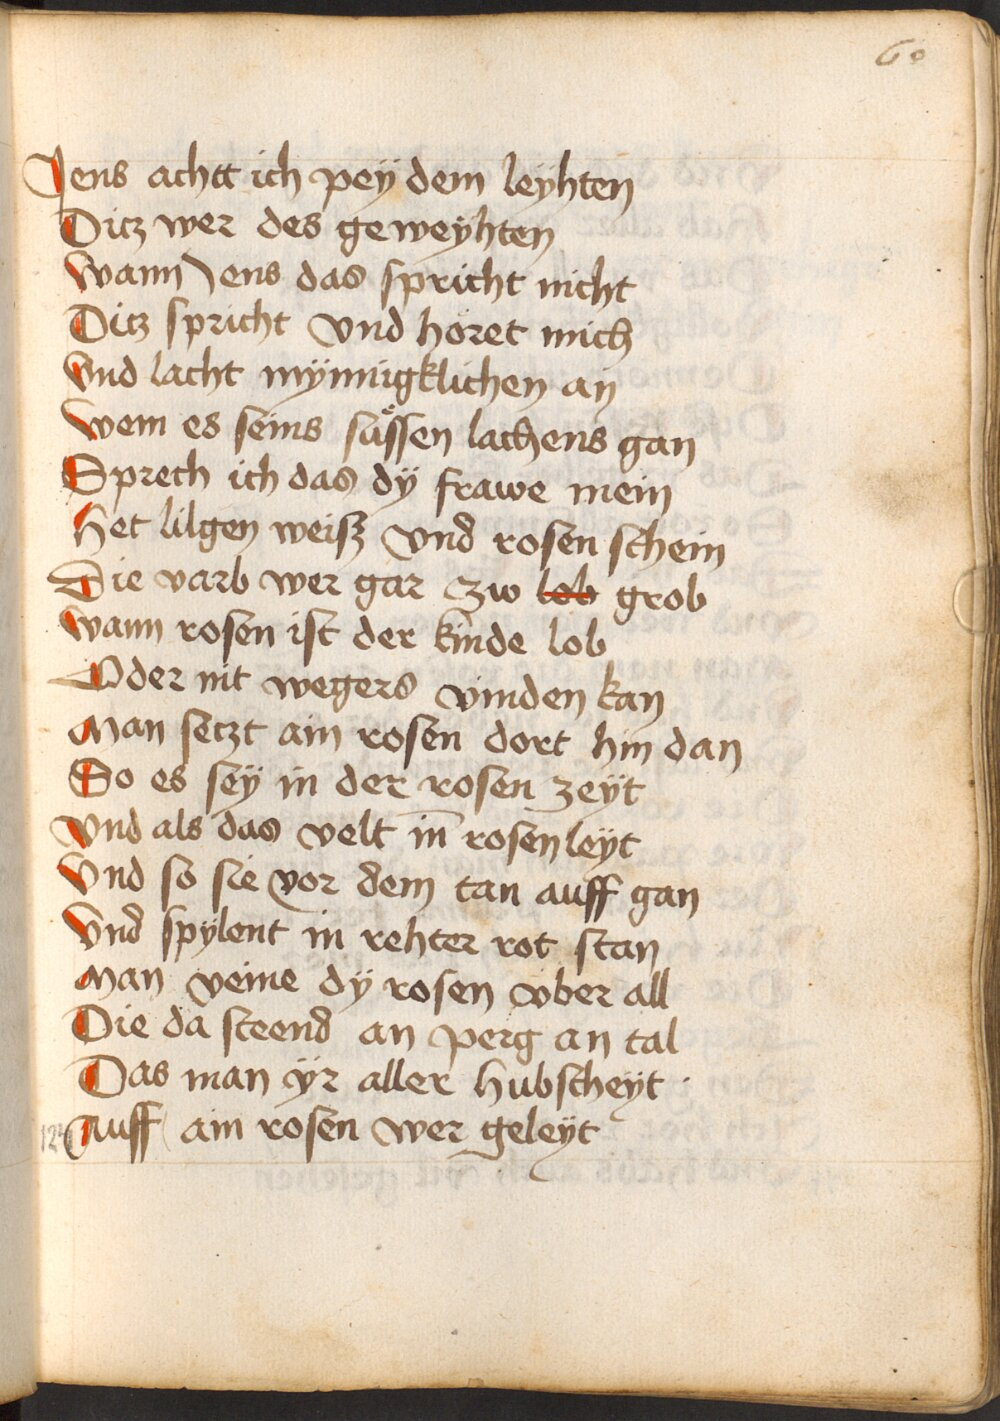 60
Jens achtt ich peÿ dem leÿhten
Ditz wer des geweÿhten
Wann Jens das spricht nicht
Ditz spricht vnd höret mich
Vnd lacht mÿnnigklichen an
Wem es seins süssen lachens gan
Sprech ich das dÿ frawe mein
Het lilgen weisz vnd rosen schein
Die varb wer gar zw lob grob
Wann rosen ist der kinde lob
Oder nit wegers vinden kan
Man setzt ain rosen dort hin dan
So es seÿ in der rosen zeÿt
Vnd als das velt in̄ rosen leÿt
Vnd so sie vor dem tan auff gan
Vnd spÿlent in rehter rot stan
Man veine dÿ rosen vber all
Die da steend an perg an tal
Das man ÿr aller hubscheÿt
Auff ain rosen wer geleÿt